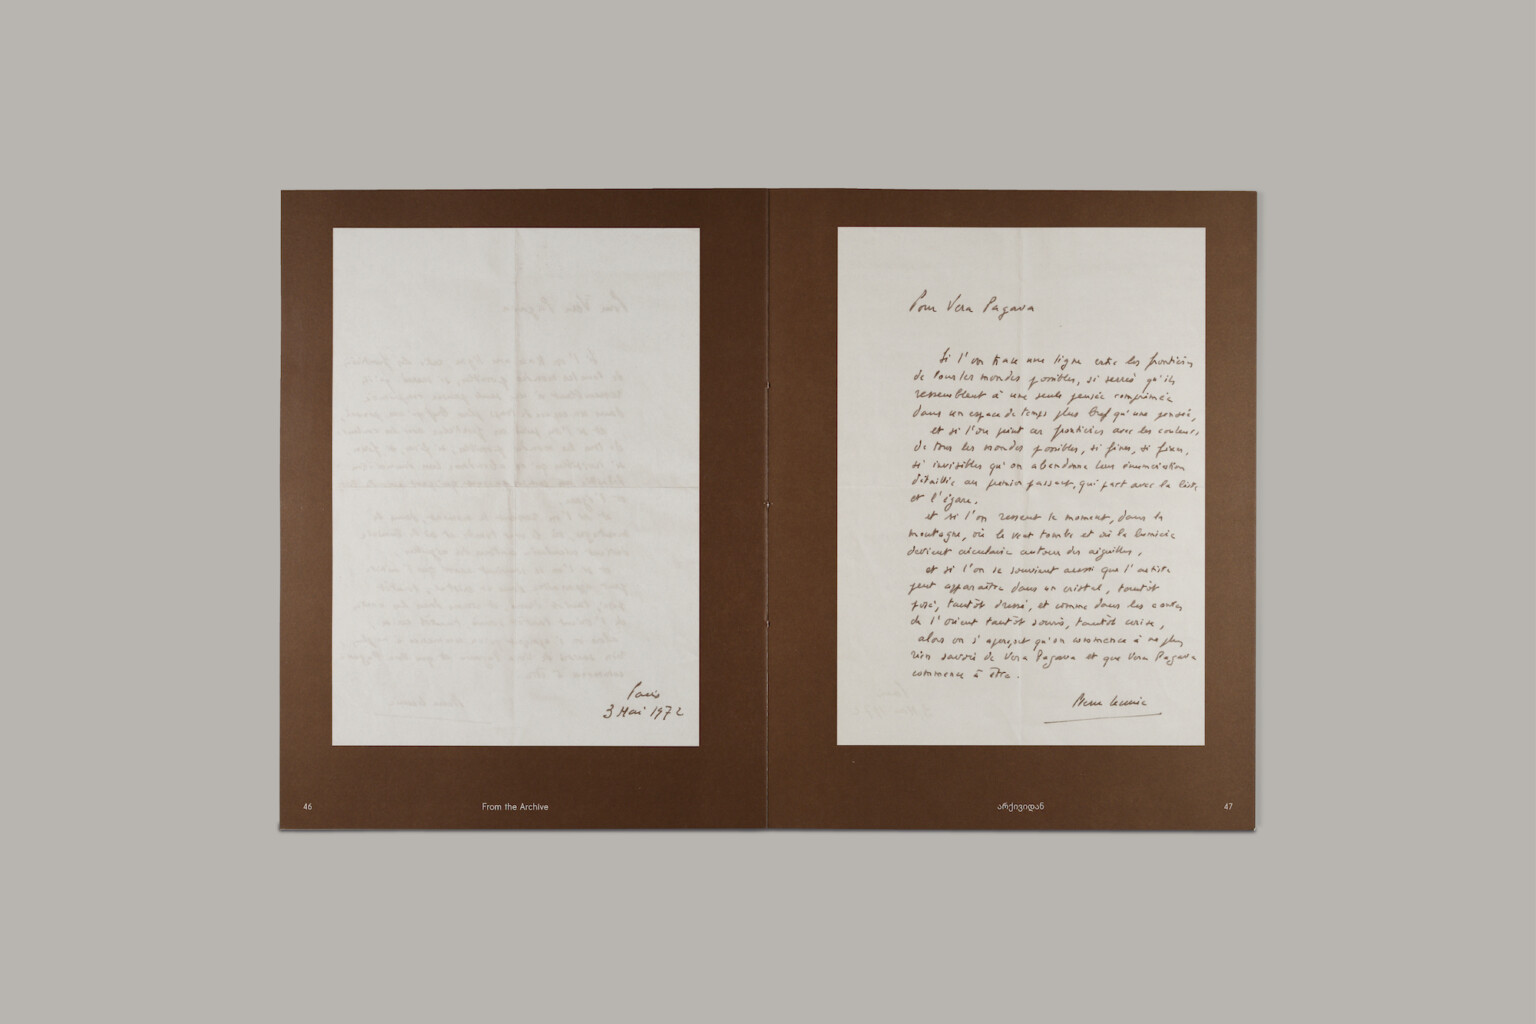 Paris
3 Mai 1972
46
From the Archive
Pour Vera Pagava
Si l'on trace une ligne entre les frontières
de tous les mondes possibles, si serrés qu'ils
ressemblent à une seule pensée comprimée
dans un espace de temps plus bref qu'une pensée,
et si l'on peint ces frontières avec les couleurs
de tous les mondes possibles, si fines, si fines,
si invisibles qu'on abandonne leur énumération
détaillée au premier passant, qui part avec la liste
et l'égare,
et si l'on ressent le moment, dans la
montagne, où le vent tombe et où la lumière
devient circulaire autour des aiguilles,
et si l'on se souvient aussi que l'artiste
peut apparaître dans un cristal, tantôt
posé, tantôt dressé, et comme dans les contes
de l'orient tantôt souris, tantôt cerise,
alors on s'aperçoit qu'on commence à ne plus
rien savoir de Vera Pagava et que Vera Pagava
commence à être.
არქივიდან
47